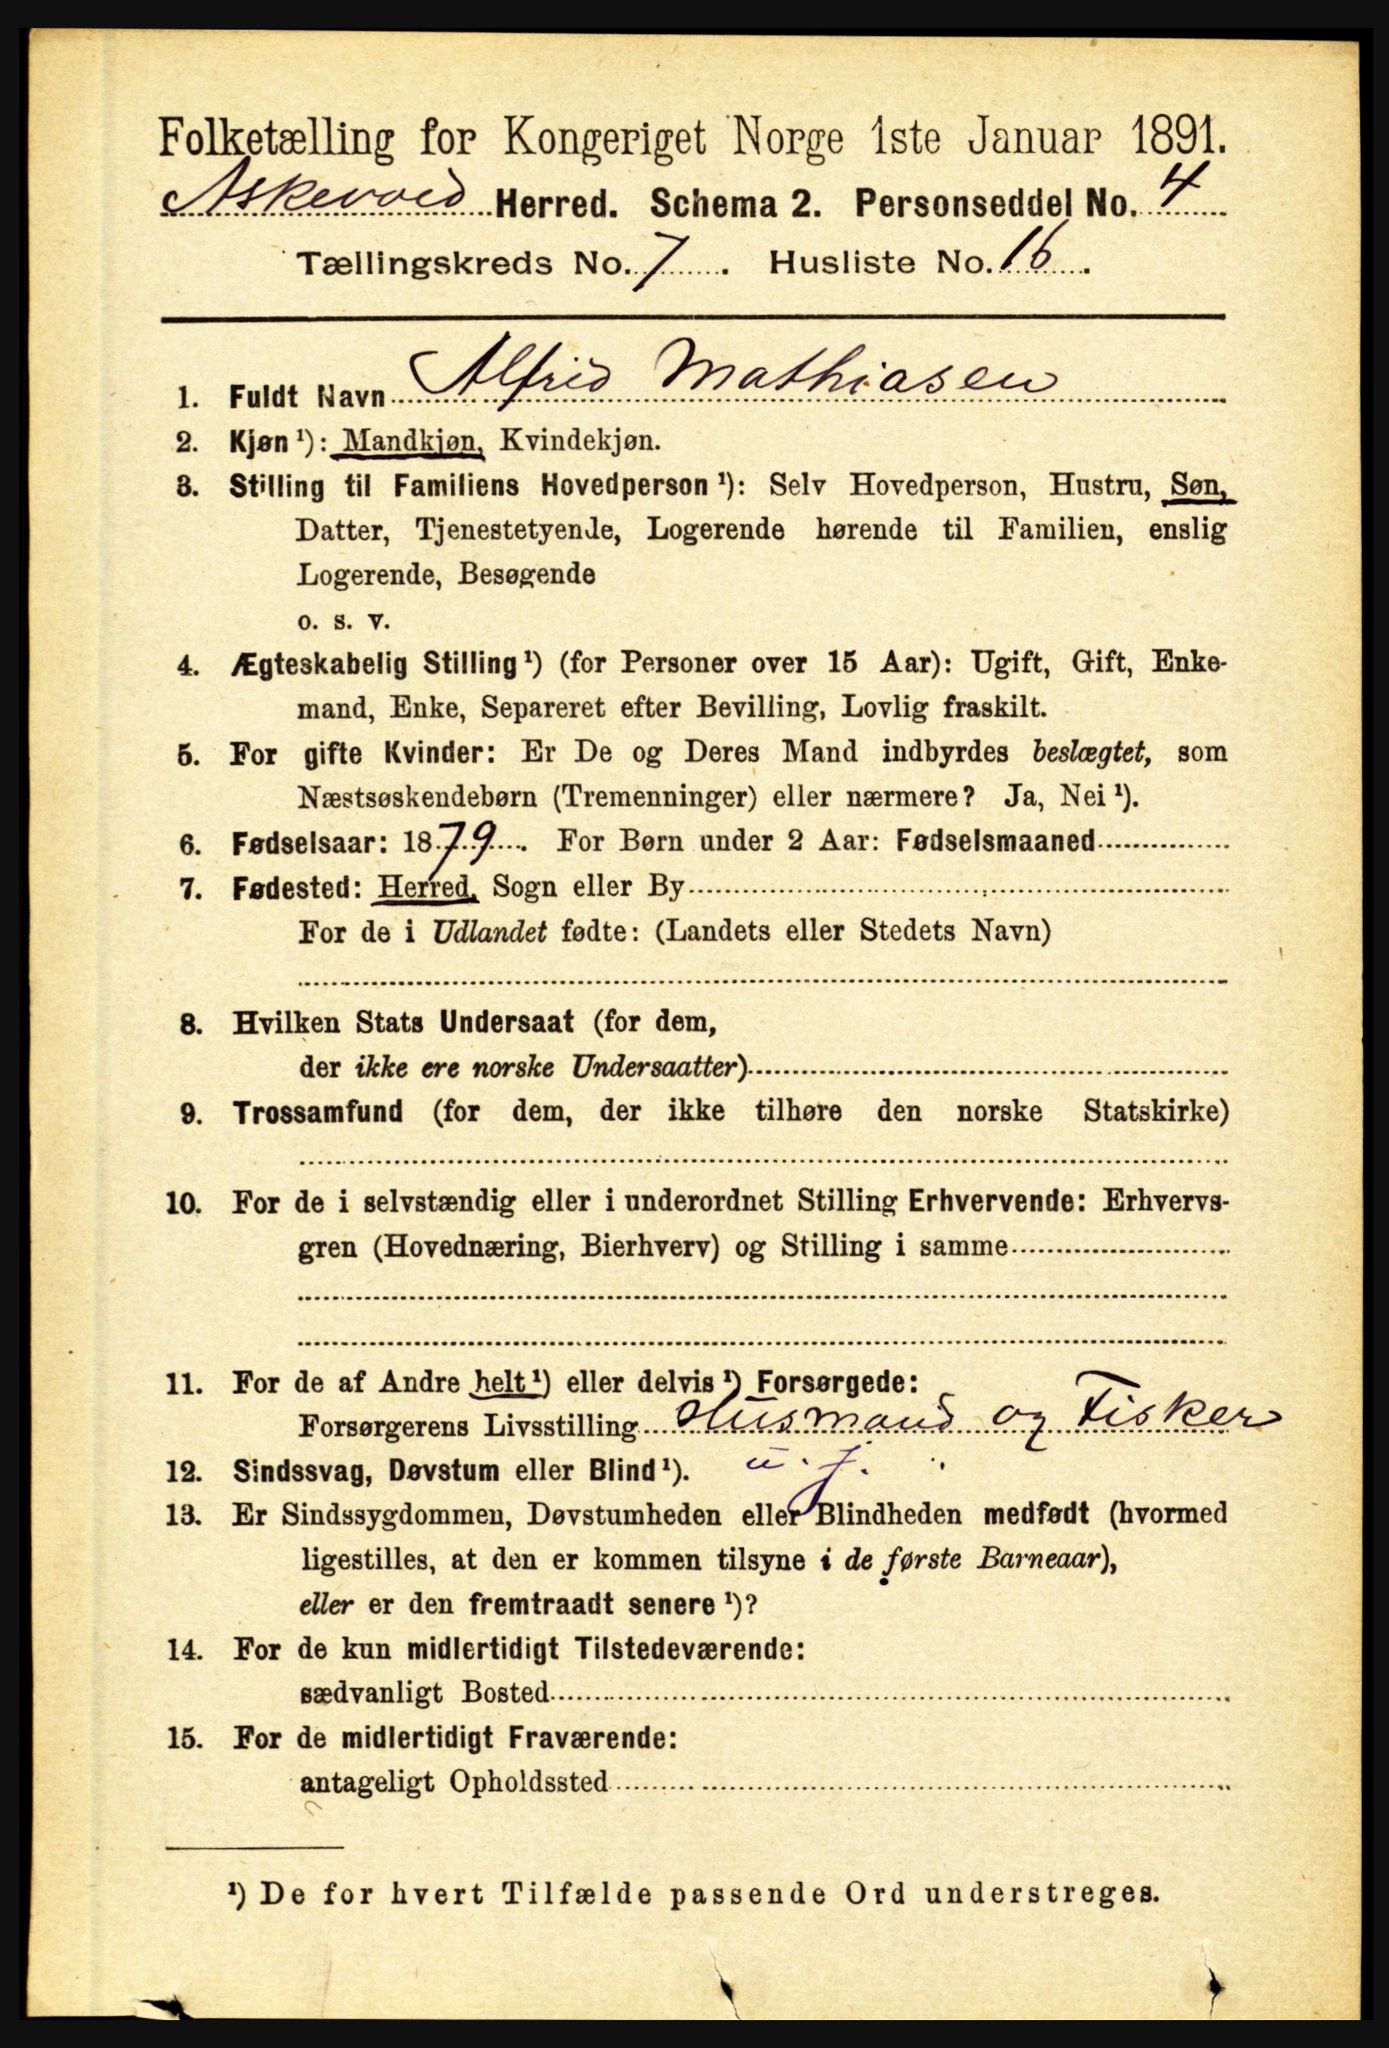 Folketælling for Kongeriget Norge 1ste Januar 1891.
Askevold Herred. Schema 2. Personseddel No. 4
Tællingskreds No. 7. Husliste No. 16.
1. Fuldt Navn Alfrid Mathiasen
2. Kjøn ¹): Mandkjøn, Kvindekjøn.
3. Stilling til Familiens Hovedperson ¹): Selv Hovedperson, Hustru, Søn,
Datter, Tjenestetyende, Logerende hørende til Familien, enslig
Logerende, Besøgende
o. s. v.
4. Ægteskabelig Stilling ¹) (for Personer over 15 Aar): Ugift, Gift, Enke-
mand, Enke, Separeret efter Bevilling, Lovlig fraskilt.
5. For gifte Kvinder: Er De og Deres Mand indbyrdes beslægtet, som
Næstsøskendebørn (Tremenninger) eller nærmere? Ja, Nei ¹).
6. Fødselsaar: 1879. For Børn under 2 Aar: Fødselsmaaned
7. Fødested: Herred, Sogn eller By
For de i Udlandet fødte: (Landets eller Stedets Navn)
8. Hvilken Stats Undersaat (for dem,
der ikke ere norske Undersaatter)
9. Trossamfund (for dem, der ikke tilhøre den norske Statskirke)
10. For de i selvstændig eller i underordnet Stilling Erhvervende: Erhvervs-
gren (Hovednæring, Bierhverv) og Stilling i samme
11. For de af Andre helt ¹) eller delvis ¹) Forsørgede:
Forsørgerens Livsstilling Husmand og Fisker
u. j.
12. Sindssvag, Døvstum eller Blind ¹).
13. Er Sindssygdommen, Døvstumheden eller Blindheden medfødt (hvormed
ligestilles, at den er kommen tilsyne i de første Barneaar),
eller er den fremtraadt senere ¹)?
14. For de kun midlertidigt Tilstedeværende:
sædvanligt Bosted
15. For de midlertidigt Fraværende:
antageligt Opholdssted
¹) De for hvert Tilfælde passende Ord understreges.